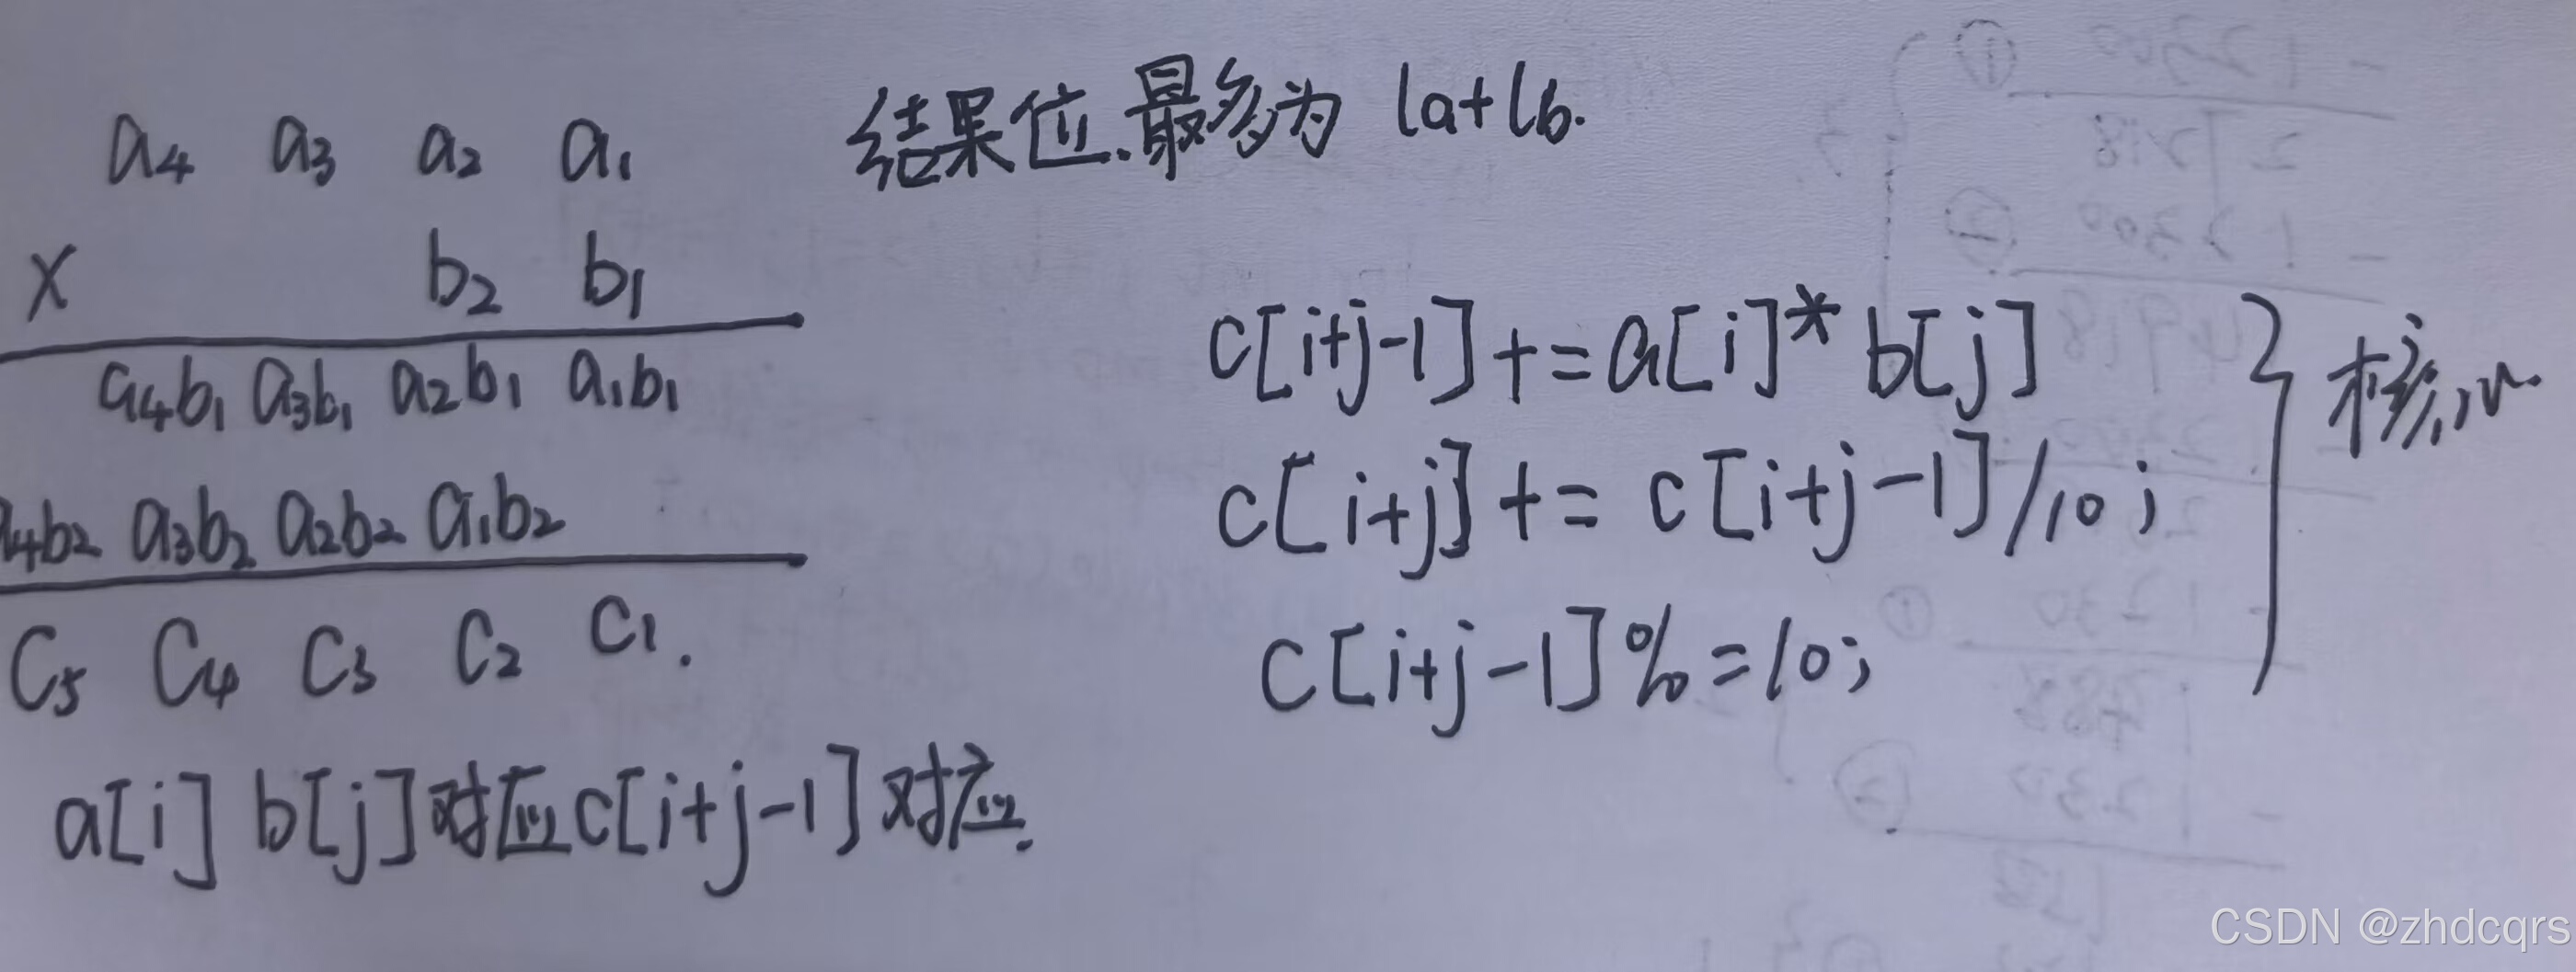 a4 a3 a2 a1
x b2 b1
a4b1 a3b1 a2b1 a1b1
a4b2 a3b2 a2b2 a1b2
C5 C4 C3 C2 C1.
a[i] b[j]对应c[i+j-1]对应.
结果位.最多为 la+lb.
c[i+j-1]+=a[i]*b[j]
c[i+j]+=c[i+j-1]/10;
c[i+j-1]%=10;
核心.
CSDN @zhdcqrs